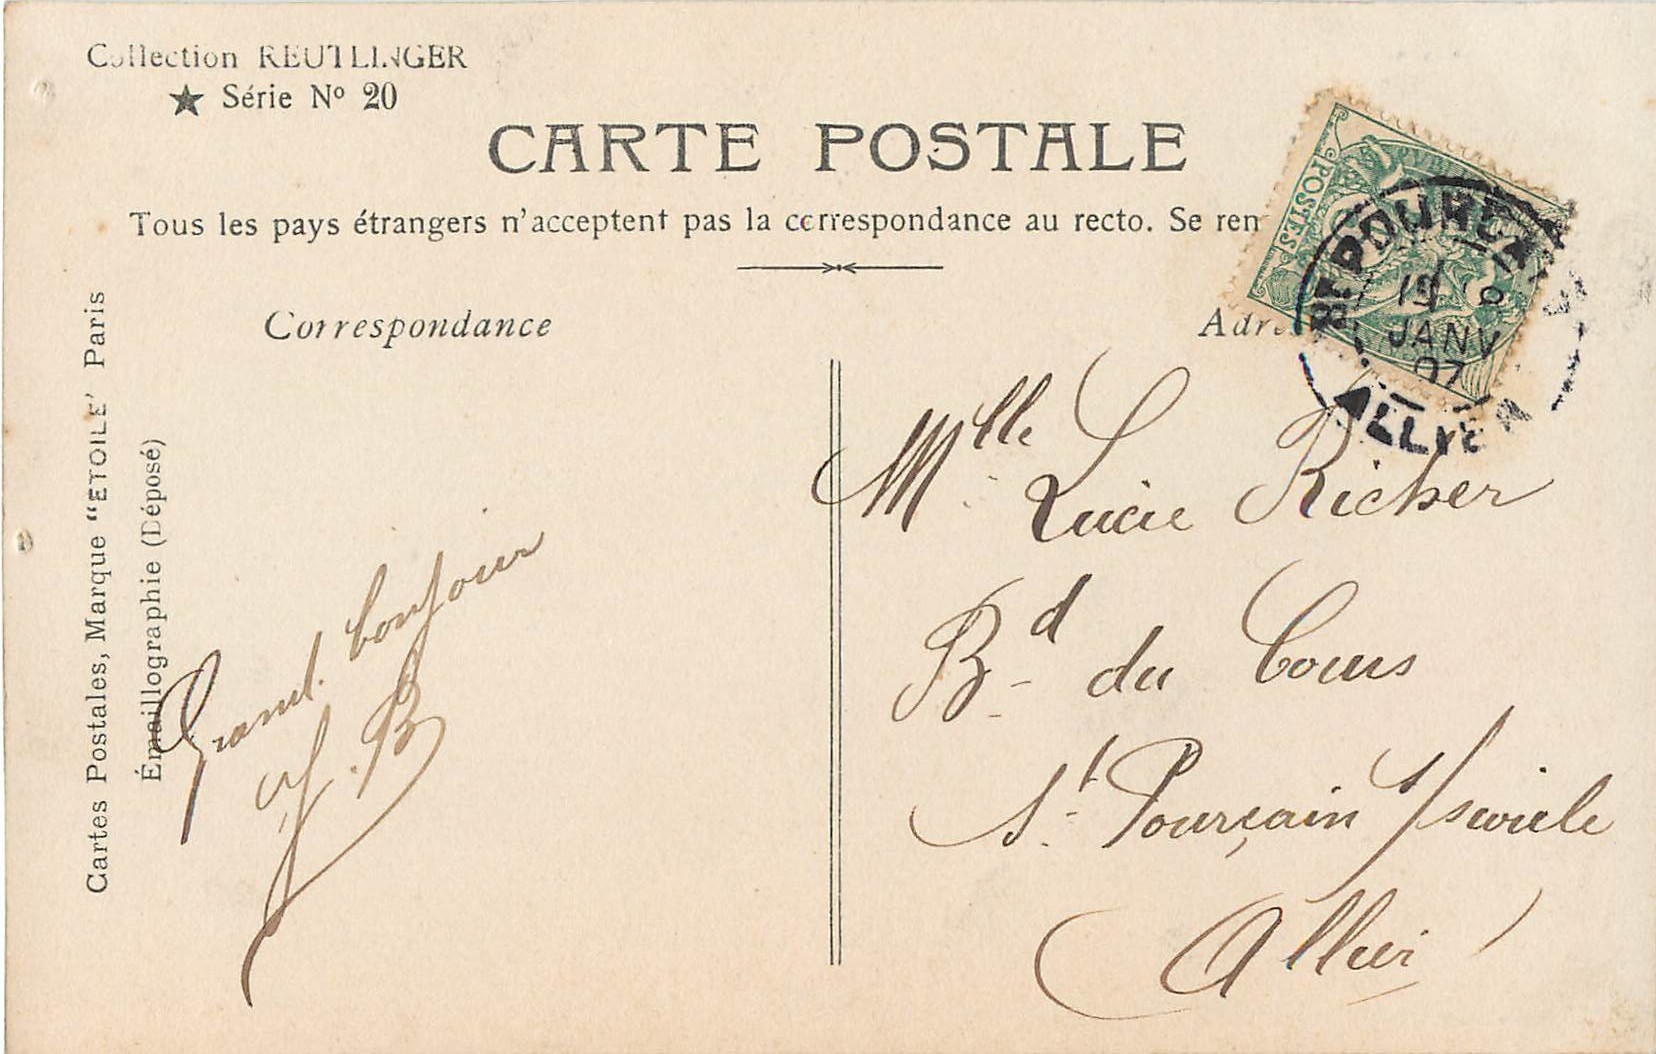 Collection REUTLINGER
★ Série Nº 20
CARTE POSTALE
Tous les pays étrangers n'acceptent pas la correspondance au recto. Se ren
POSTES
POURÇAIN
19
JANV
07
ALLIER
Correspondance
Adre
Cartes Postales, Marque "ETOILE" Paris
Émaillographie (Déposé)
Grand bonjour
J. B
Mlle Lucie Richer
Bd du Cours
St Pourçain s/ Sioule
Allier